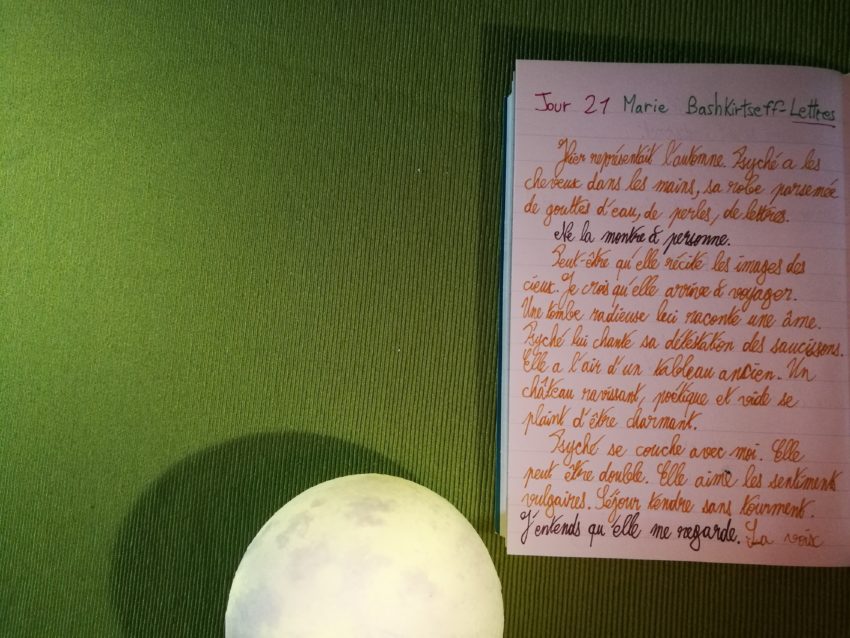 Jour 21 Marie Bashkirtseff - Lettres
Hier représentait l'automne. Psyché a les
cheveux dans les mains, sa robe parsemée
de gouttes d'eau, de perles, de lettres.
Ne la montre à personne.
Peut-être qu'elle récite les images des
cieux. Je crois qu'elle arrive à voyager.
Une tombe radieuse lui raconte une âme.
Psyché lui chante sa détestation des saucissons.
Elle a l'air d'un tableau ancien. Un
château ravissant, poétique et vide se
plaint d'être charmant.
Psyché se couche avec moi. Elle
peut être double. Elle aime les sentiments
vulgaires. Séjour tendre sans tourment.
J'entends qu'elle me regarde. La voix